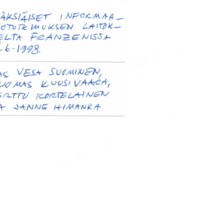 ÄKSIÄISET INFORMAA-
OTUTKIMUKSEN LAITOK-
ELTA FRANZENISSA
.6.1998.
AS VESA SUOMINEN,
UOMAS KUUSIVAARA,
ERTTU KORTELAINEN
A JANNE HIMANKA